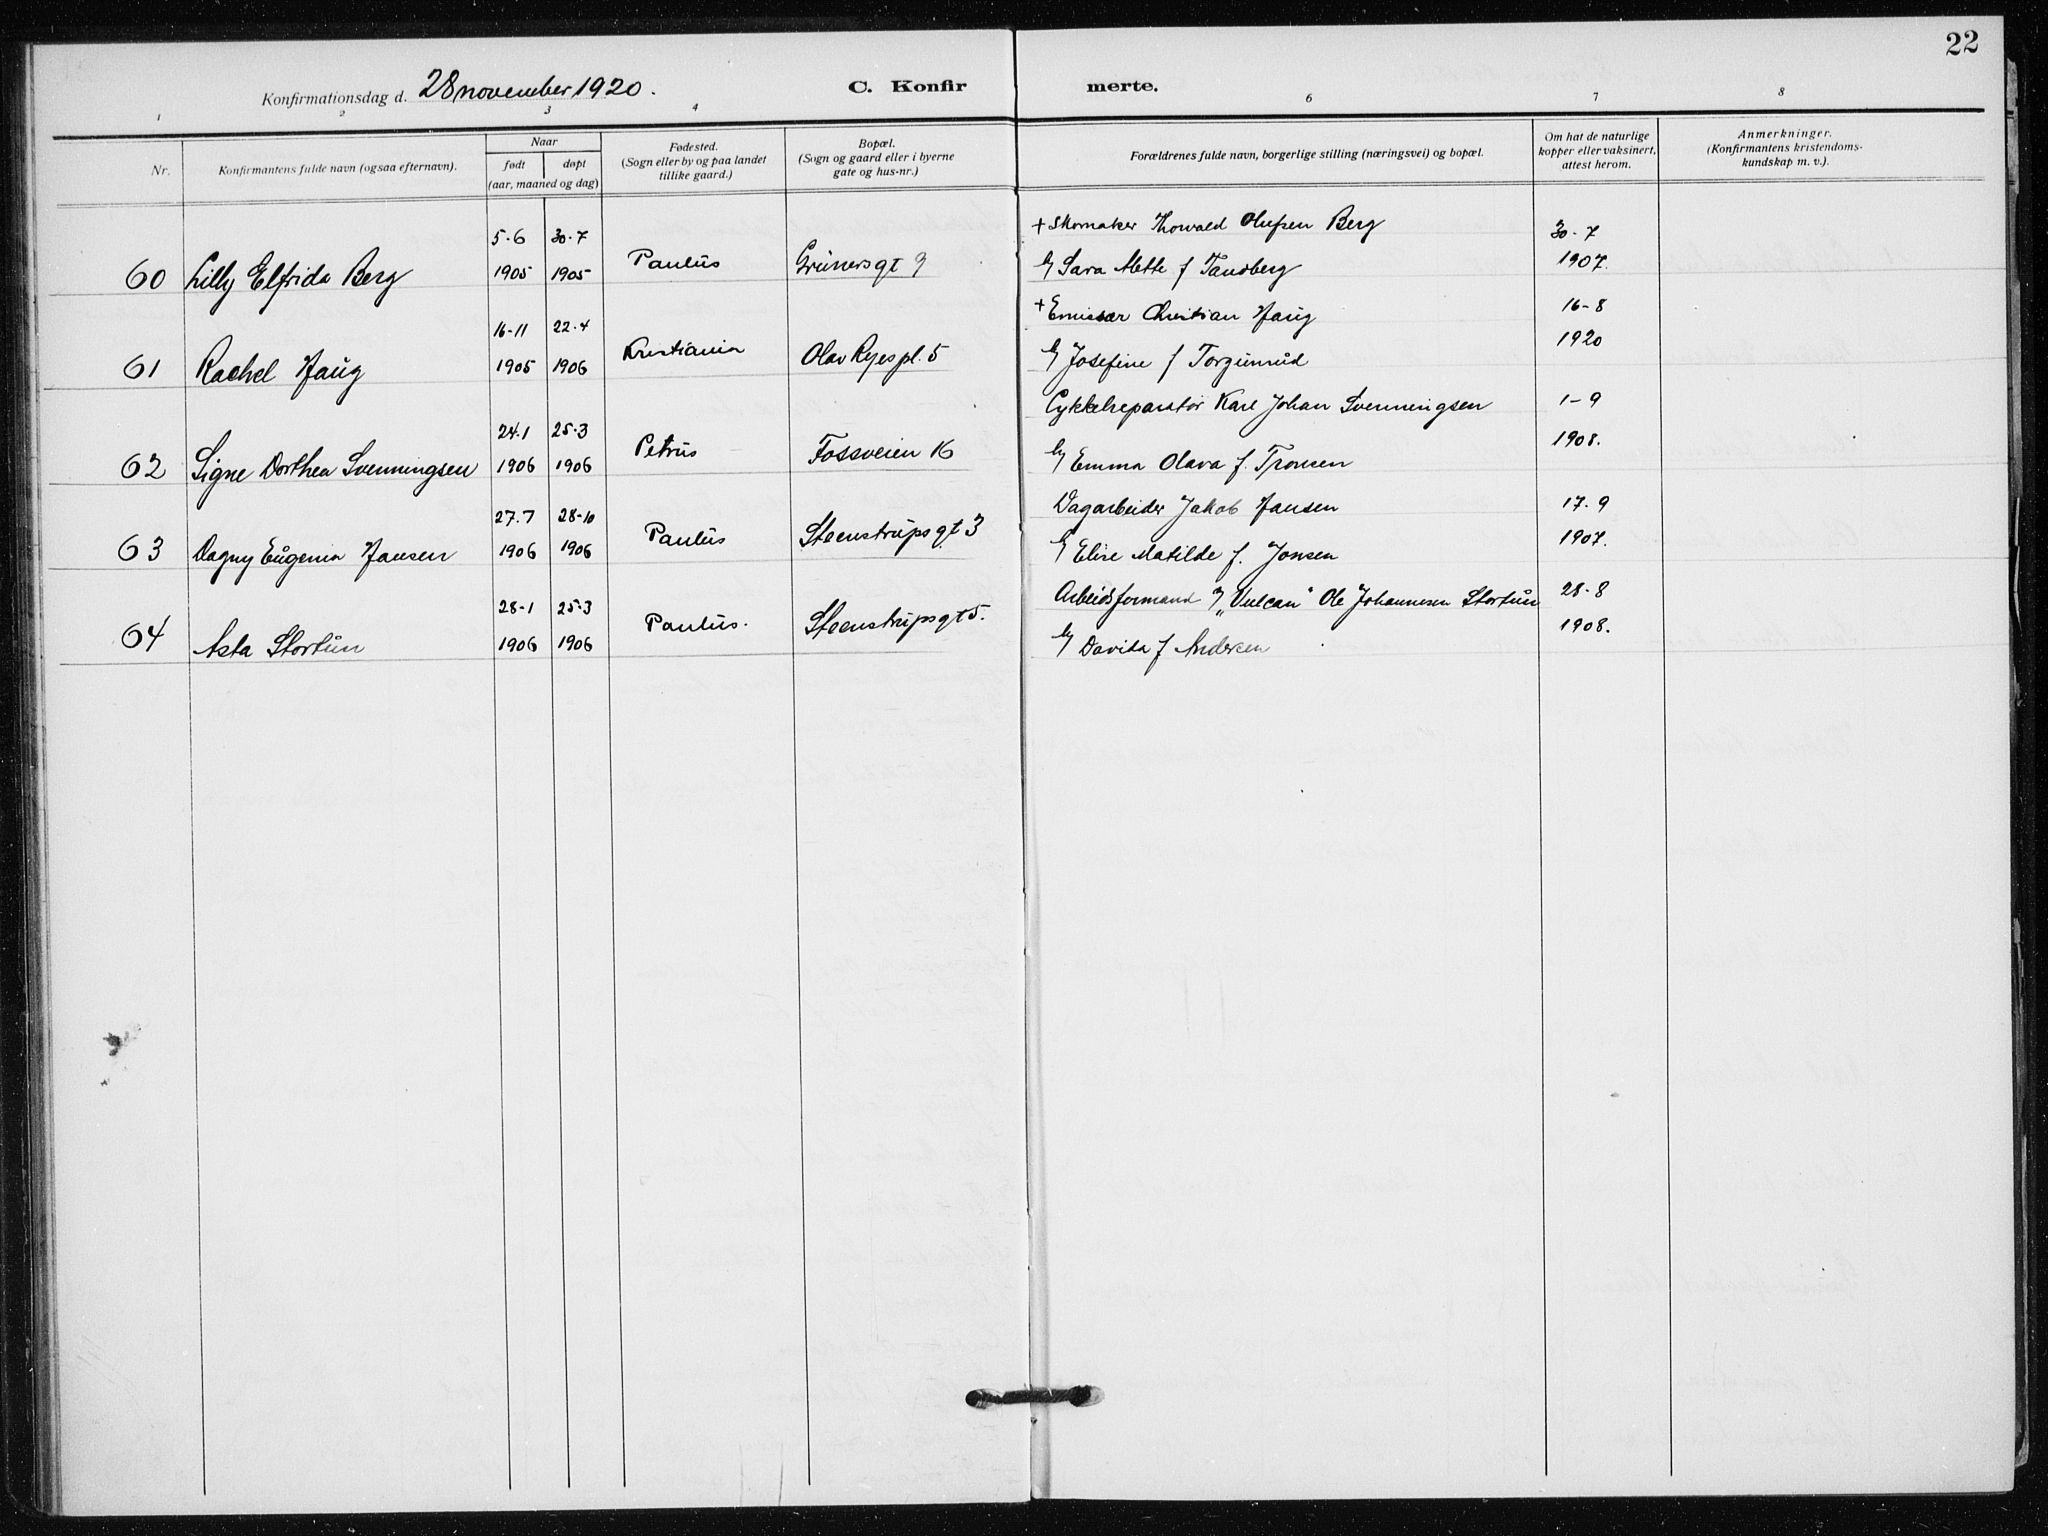 22
Konfirmationsdag d. 28 november 1920.
C. Konfirmerte.
1 2 3 4 6 7 8
Nr.
Konfirmantens fulde navn (ogsaa efternavn).
Naar
født
døpt
(aar, maaned og dag)
Fødested.
(Sogn eller by og paa landet
tillike gaard.)
Bopæl.
(Sogn og gaard eller i byerne
gate og hus-nr.)
Forældrenes fulde navn, borgerlige stilling (næringsvei) og bopæl.
Om hat de naturlige
kopper eller vaksinert,
attest herom.
Anmerkninger.
(Konfirmantens kristendoms-
kundskap m. v.).
5-6 30-7 + Skomaker Thorvald Olufsen Berg 30-7
60 Lilly Elfrida Berg 1905 1905 Paulus Grünersgt 9 Sara Mette f Tandberg 1907.
16-11 22-4 + Emissær Christian Haug 16-8
61 Rachel Haug 1905 1906 Kristiania Olav Ryes pl. 5 Josefine f Torgunrud 1920
24.1 25-3 Cykkelreparatør Karl Johan Svenningsen 1-9
62 Signe Dorthea Svenningsen 1906 1906 Petrus Fossveien 16 Emma Olava f. Tronsen 1908.
27.7 28-10 Dagarbeider Jakob Hansen 17.9
63 Dagny Eugenia Hansen 1906 1906 Paulus Steenstrupsgt 3 Elise Matilde f. Jonsen 1907.
28-1 25-3 Arbeidsformand "Vulcan" Ole Johannesen Stortun 28-8
64 Asta Stortun 1906 1906 Paulus. Steenstrupsgt 5. Davida f Andersen 1908.